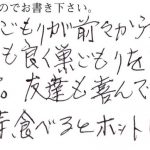 のでお書き下さい。
ごもりが前々から
も良く巣ごもりを
。友達も喜んで
時食べるとホットし